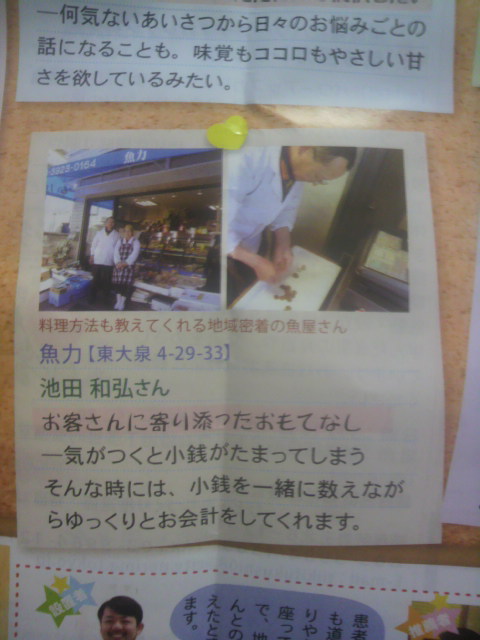 ―何気ないあいさつから日々のお悩みごとの
話になることも。味覚もココロもやさしい甘
さを欲しているみたい。
魚力
料理方法も教えてくれる地域密着の魚屋さん
魚力【東大泉 4-29-33】
池田 和弘さん
お客さんに寄り添ったおもてなし
―気がつくと小銭がたまってしまう
そんな時には、小銭を一緒に数えなが
らゆっくりとお会計をしてくれます。